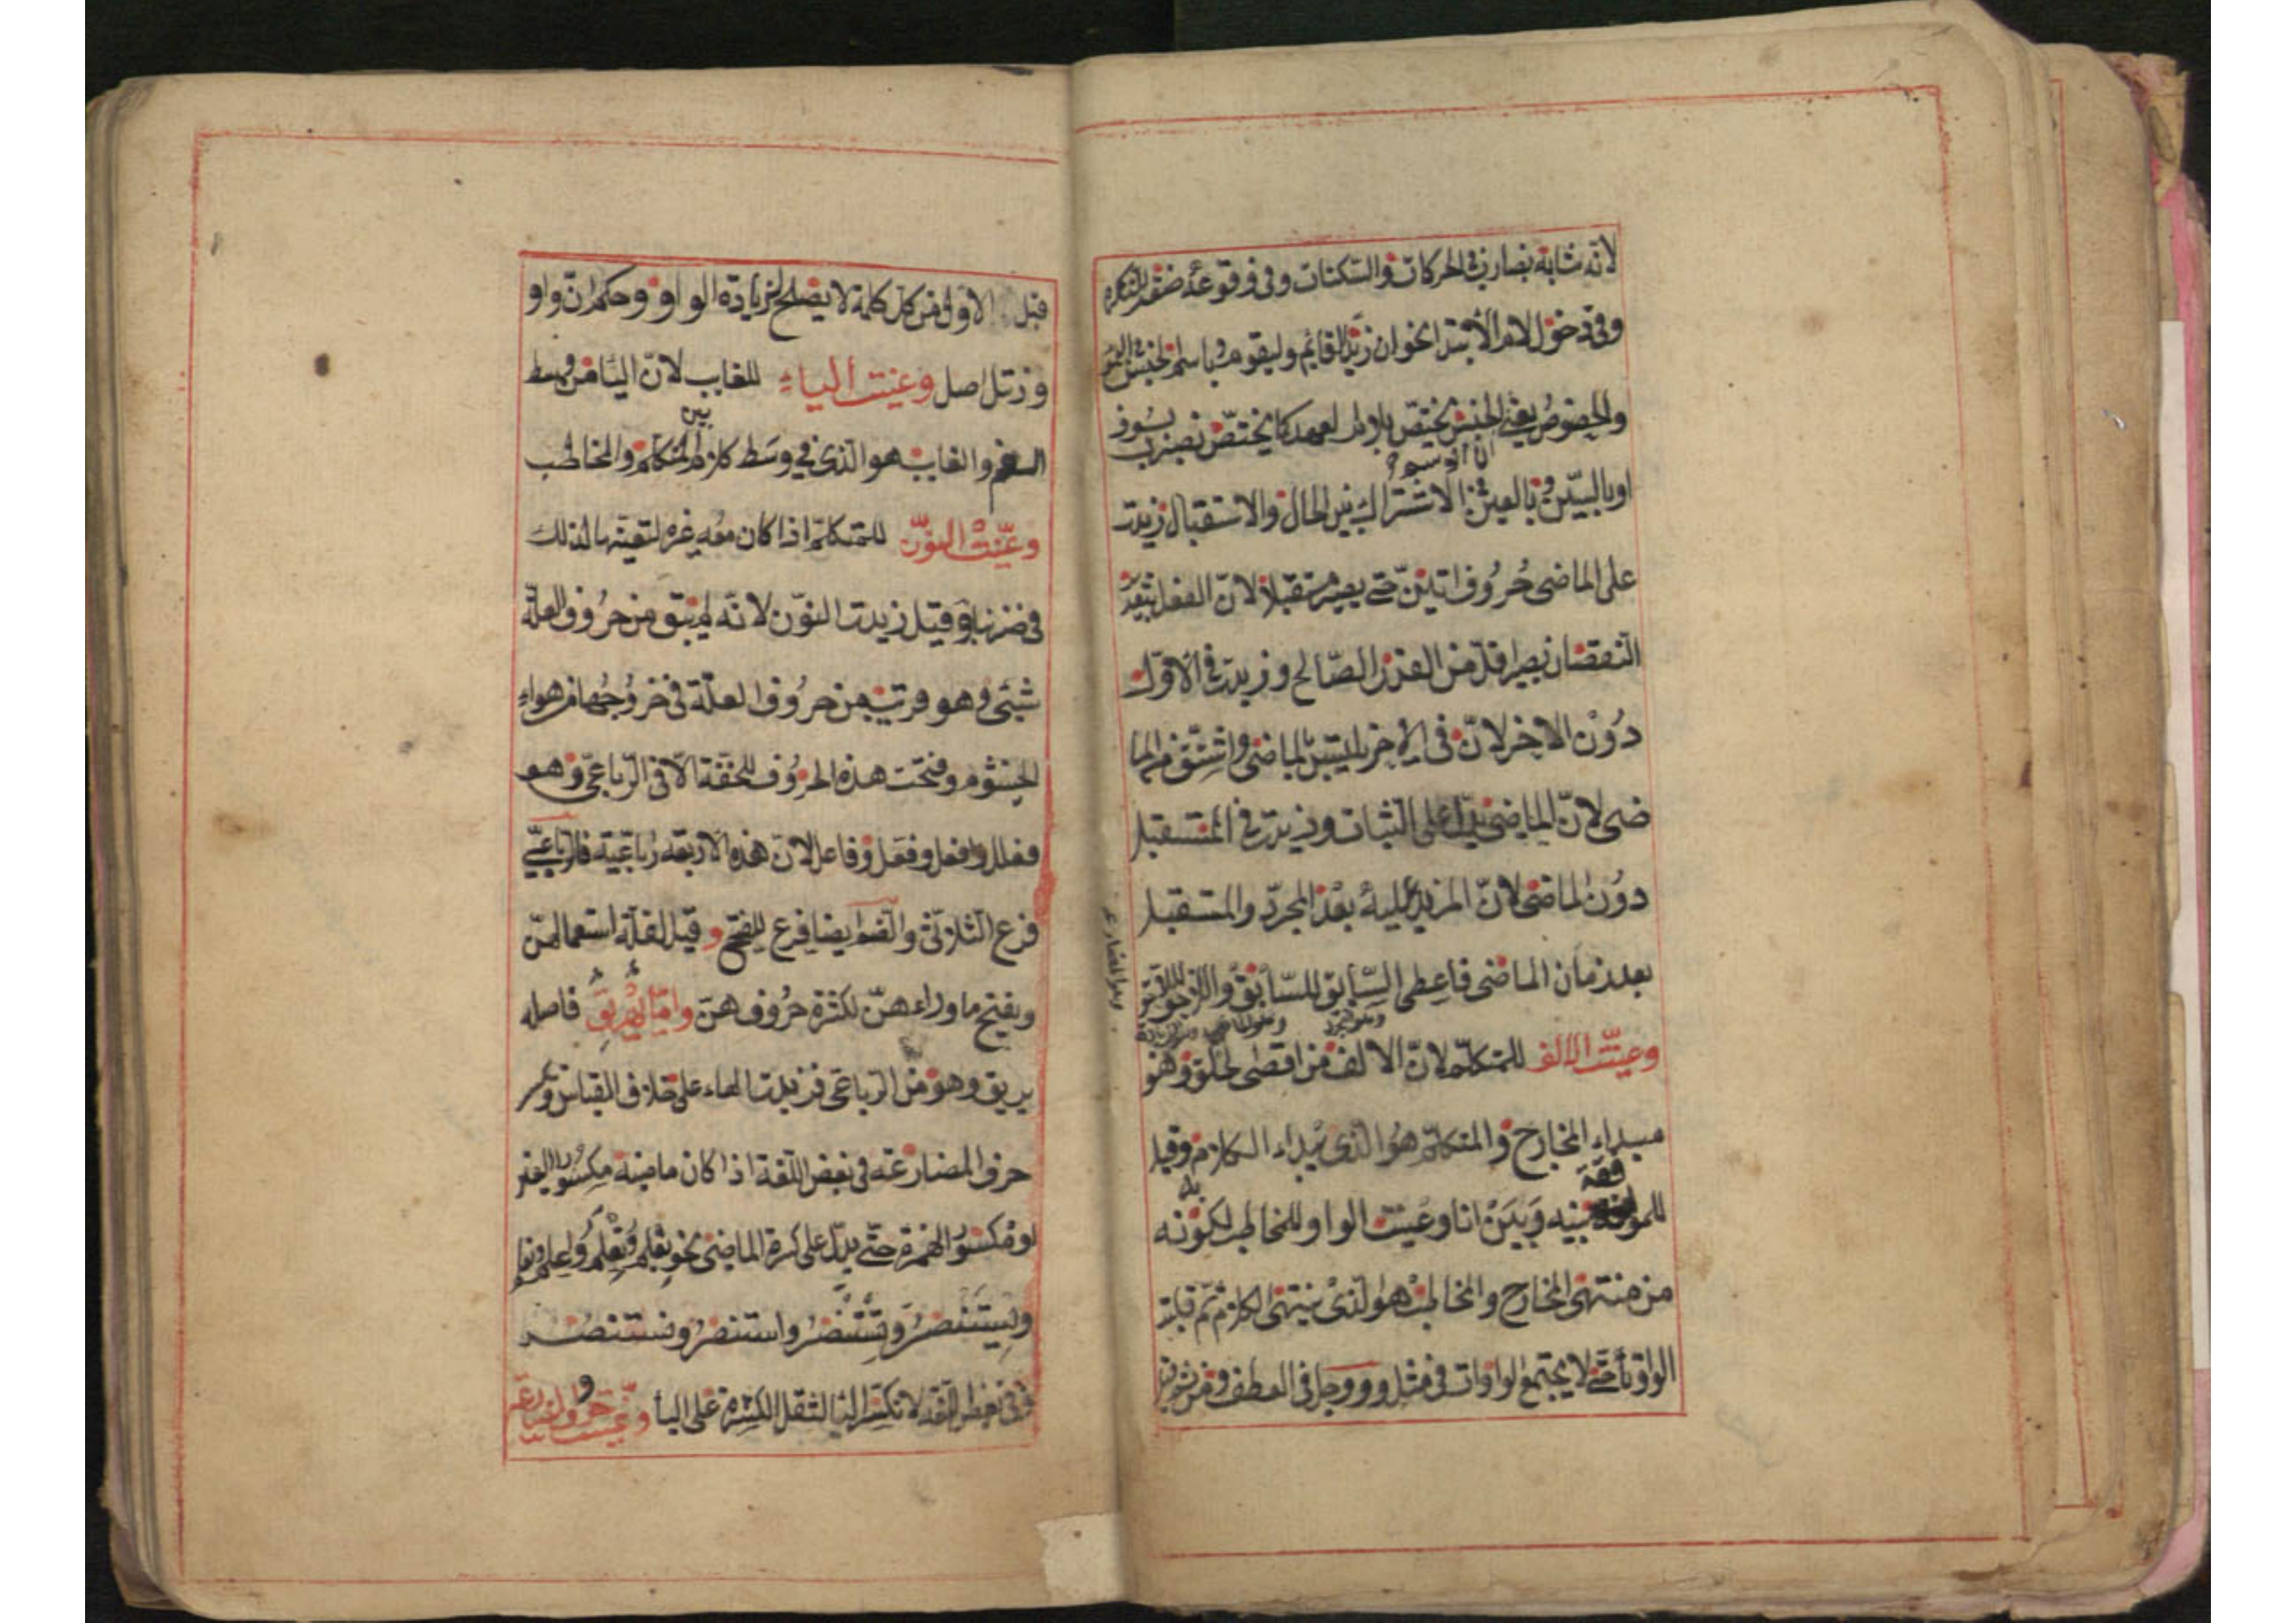 لانه شابه بضارب فى الحركات والسكنات وفى وقوعه صفة للنكرة
وفى دخول لام الابتداء نحو ان زيدا لقائم وليقوم وباسم الجنس فى العموم
والخصوص يعنى الجنس يختص بلام العهد كما يختص يضرب بسوف
او بالسين وبالعين فى الاشتراك بين الحال والاستقبال زيدت
على الماضى حروف اتين حتى يصير مستقبلا لان الفعل بتقدير
النقصان يصير اقل من القدر الصالح وزيدت فى الاول
دون الاخر لان فى الاخر يلتبس بالماضى واشتق من الما
ضى لان الماضى يدل على الثبات وزيدت فى المستقبل
دون الماضى لان المزيد عليه بعد المجرد والمستقبل
بعد زمان الماضى فاعطى السابق للسابق واللاحق للاحق
وعينت الالف للمتكلم لان الالف من اقصى الحلق وهو
مبداء المخارج والمتكلم هو الذى يبداء الكلام وقيل
للموافقة بينه وبين انا وعينت الواو للمخاطب لكونه
من منتهى المخارج والمخاطب هو الذى ينتهى الكلام ثم قلبت
الواو تأ حتى لا يجتمع الواوات فى مثل وووجل فى العطف ومن ثم
قيل الاول من كل كلمة لا يصلح لزيادة الواو وحكم ان واو
ورنتل اصل وعينت الياء للغايب لان اليا من وسط
الفم والغايب هو الذى فى وسط كلام بين المتكلم والمخاطب
وعينت النون للمتكلم اذا كان معه غيره لتعينها لذلك
فى ضربنا وقيل زيدت النون لانه لم يبق من حروف العلة
شيئ وهو قريب من حروف العلة فى خروجها من هواء
الخيشوم وفتحت هذه الحروف للخفة الا فى الرباعى وهو
فعلل وافعل وفعل وفاعل لان هذه الاربعة رباعية فالرباعى
فرع الثلاثى والضم ايضا فرع للفتح وقيل لقلة استعمالهن
ويفتح ما وراءهن لكثرة حروفهن واما يهريق فاصله
يريق وهو من الرباعى فزيدت الهاء على خلاف القياس وتكسر
حرف المضارعة فى بعض اللغة اذا كان ماضيه مكسور العين
او مكسور الهمزة حتى يدل على كسرة الماضى نحو يعلم وتعلم واعلم ونعلم
ويستنصر وتستنصر واستنصر ونستنصر
وفى بعض اللغة لا تكسر اليا لثقل الكسرة على اليأ وعينت حروف المضارعة